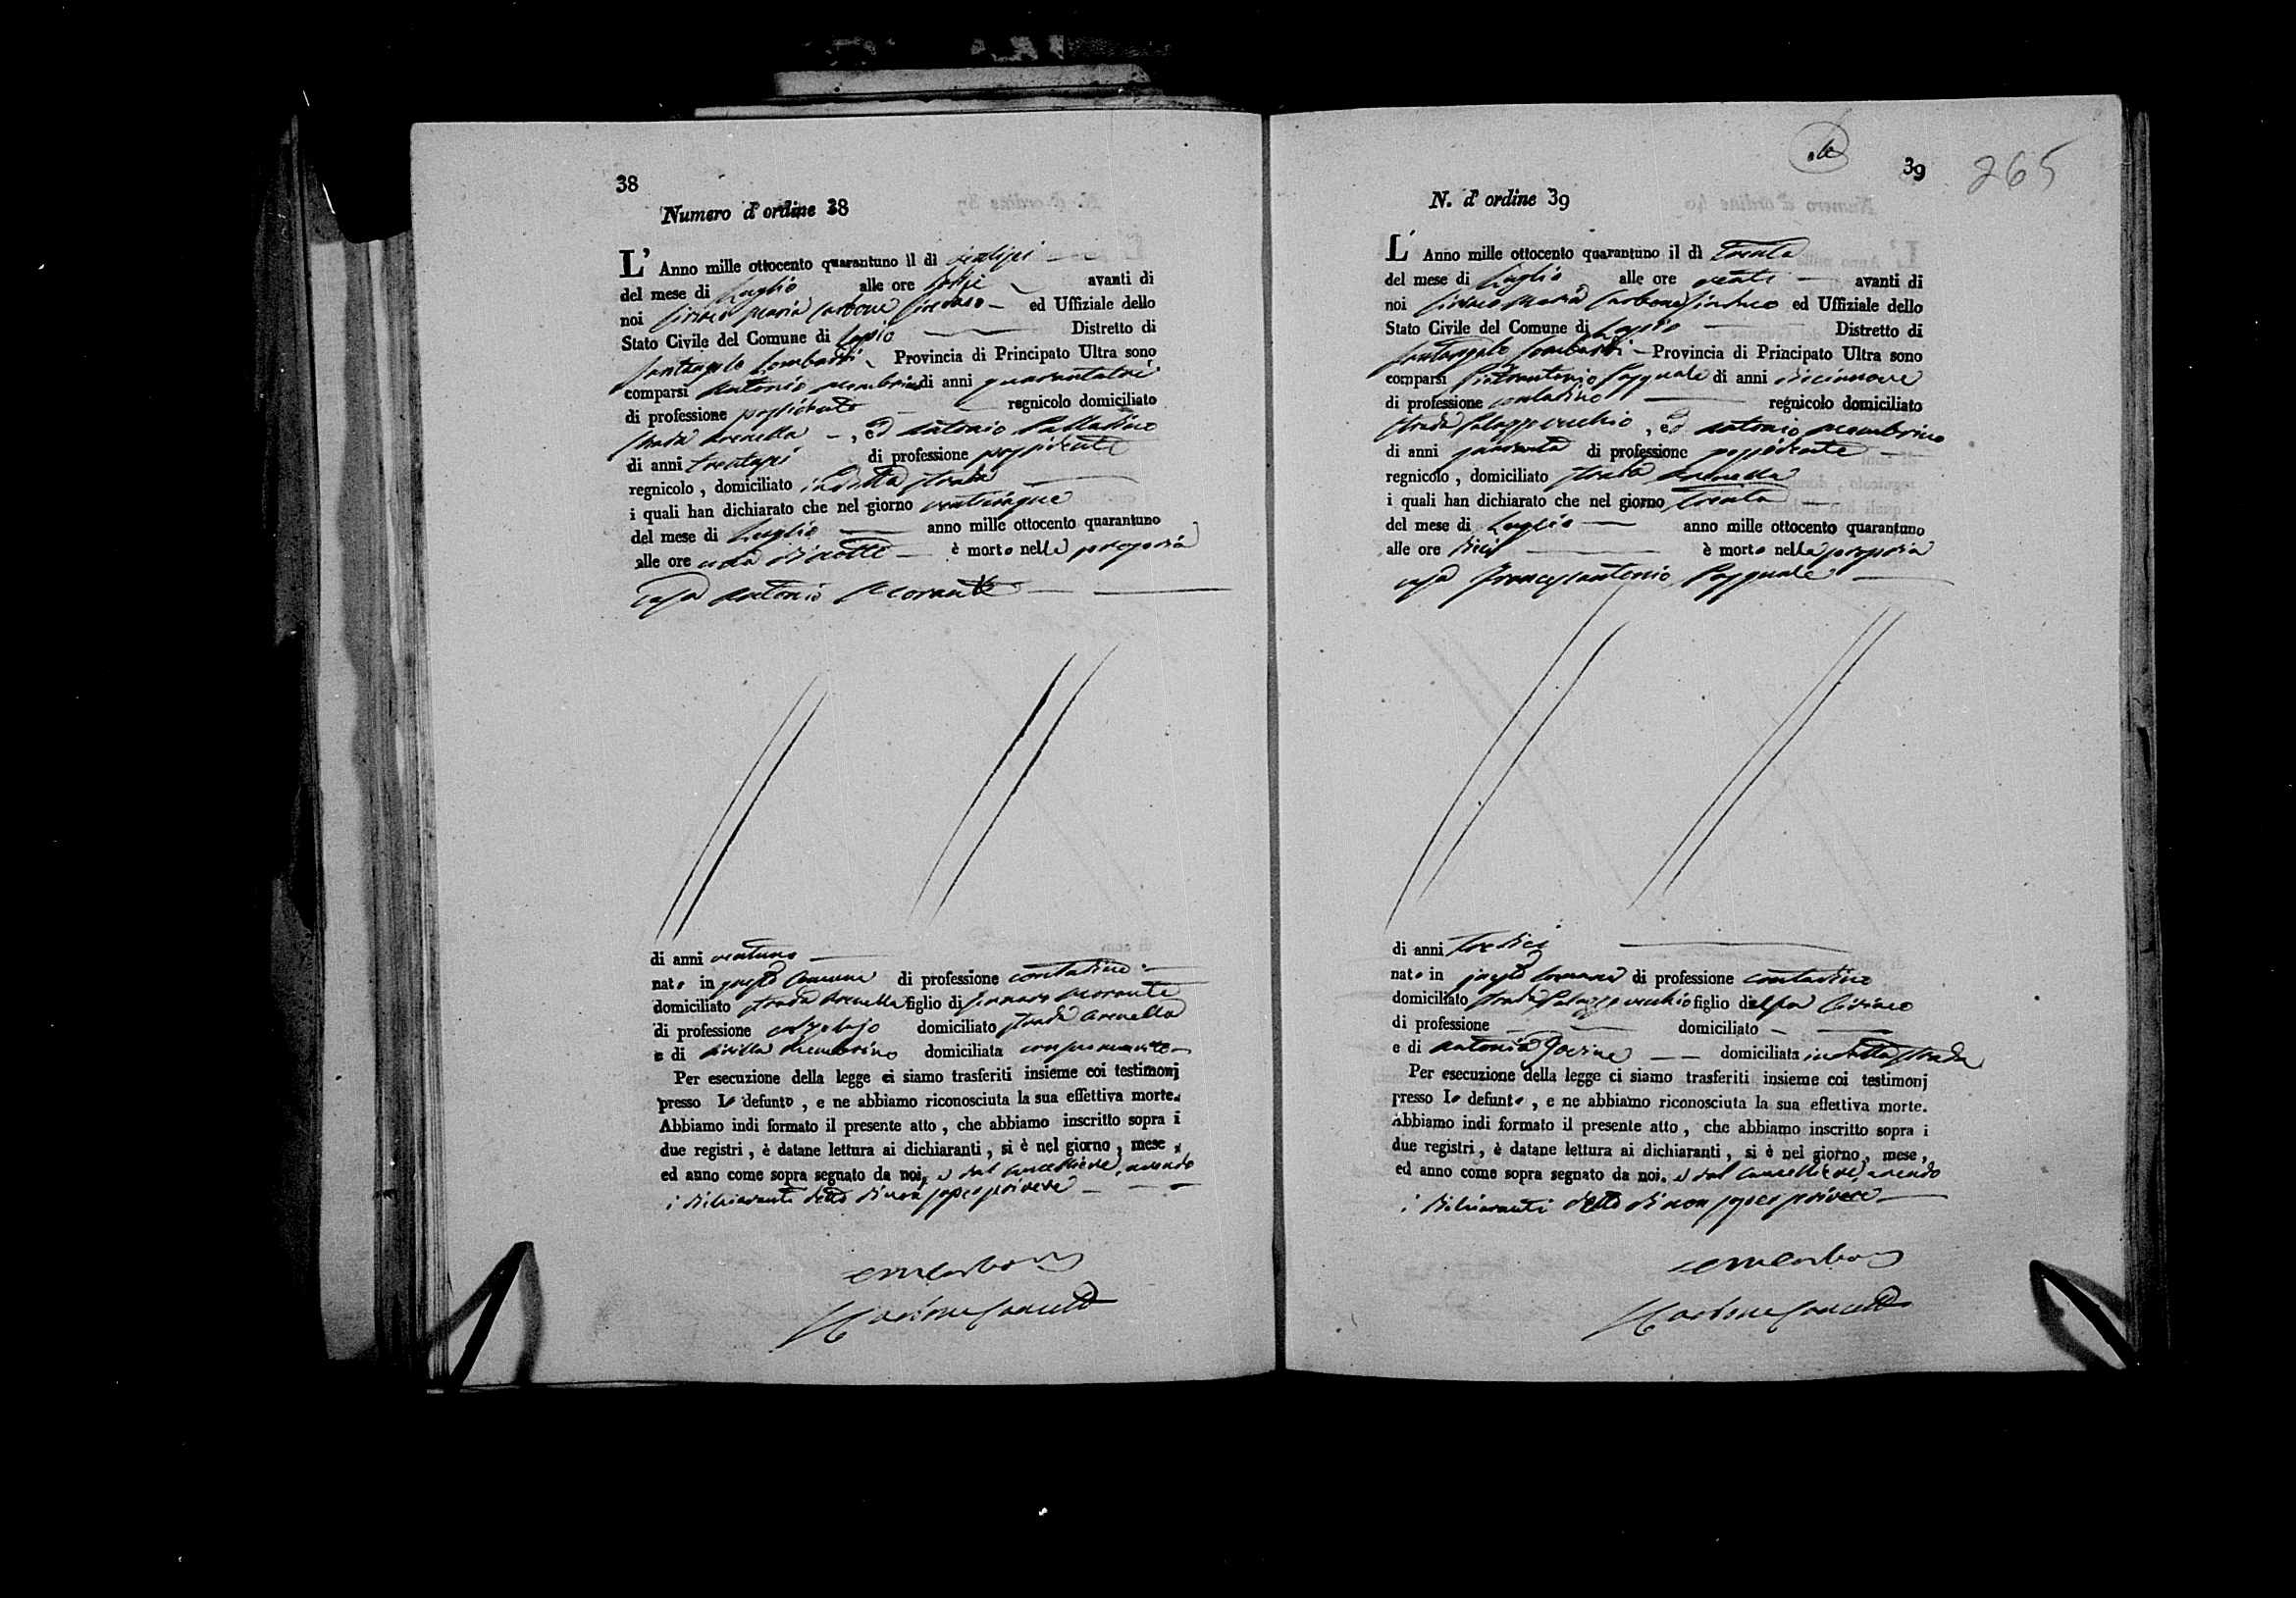 38
Numero d'ordine 38
L' Anno mille ottocento quarantuno il dì ventisei
del mese di Luglio alle ore avanti di
noi Ciriaco Maria Carbone Sindaco ed Uffiziale dello
Stato Civile del Comune di Lapio Distretto di
Santangelo Lombardi Provincia di Principato Ultra sono
comparsi Antonio Membrino di anni quarantatrè
di professione possidente regnicolo domiciliato
strada Arenella, ed Antonio Palladino
di anni trentasei di professione possidente
regnicolo, domiciliato in detta strada
i quali han dichiarato che nel giorno venticinque
del mese di Luglio anno mille ottocento quarantuno
alle ore una di notte è morto nella propria
casa Antonio Morante
di anni ventuno
nato in questo Comune di professione contadino
domiciliato strada Arenella figlio di Gennaro Morante
di professione domiciliato strada Arenella
e di Sivilla Membrino domiciliata
Per esecuzione della legge ci siamo trasferiti insieme coi testimonj
presso lo defunto, e ne abbiamo riconosciuta la sua effettiva morte.
Abbiamo indi formato il presente atto, che abbiamo inscritto sopra i
due registri, è datane lettura ai dichiaranti, si è nel giorno, mese,
ed anno come sopra segnato da noi, e dal Cancelliere, avendo
i dichiaranti detto di non saper scrivere
CMCarbone
39
265
N. d' ordine 39
L' Anno mille ottocento quarantuno il dì trenta
del mese di Luglio alle ore venti avanti di
noi Ciriaco Maria Carbone Sindaco ed Uffiziale dello
Stato Civile del Comune di Lapio Distretto di
Santangelo Lombardi Provincia di Principato Ultra sono
comparsi Pietrantonio Pasquale di anni diciannove
di professione contadino regnicolo domiciliato
strada Palazzovecchio, ed Antonio Membrino
di anni quaranta di professione possidente
regnicolo, domiciliato strada Arenella
i quali han dichiarato che nel giorno trenta
del mese di Luglio anno mille ottocento quarantuno
alle ore dieci è morto nella propria
casa Francescantonio Pasquale
di anni tredici
nato in questo Comune di professione contadino
domiciliato strada Palazzovecchio figlio del fu Ciriaco
di professione domiciliato
e di Antonia domiciliata in detta strada
Per esecuzione della legge ci siamo trasferiti insieme coi testimonj
presso lo defunto, e ne abbiamo riconosciuta la sua effettiva morte.
Abbiamo indi formato il presente atto, che abbiamo inscritto sopra i
due registri, è datane lettura ai dichiaranti, si è nel giorno, mese,
ed anno come sopra segnato da noi, e dal Cancelliere, avendo
i dichiaranti detto di non saper scrivere
CMCarbone